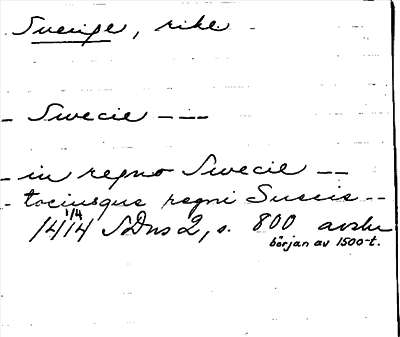 Sverige, rike
- Swecie ---
- in regno Swecie --
- tociusque regni Suecie --
1/4
1414 SDns 2, s. 800 avskr
början av 1500-t.